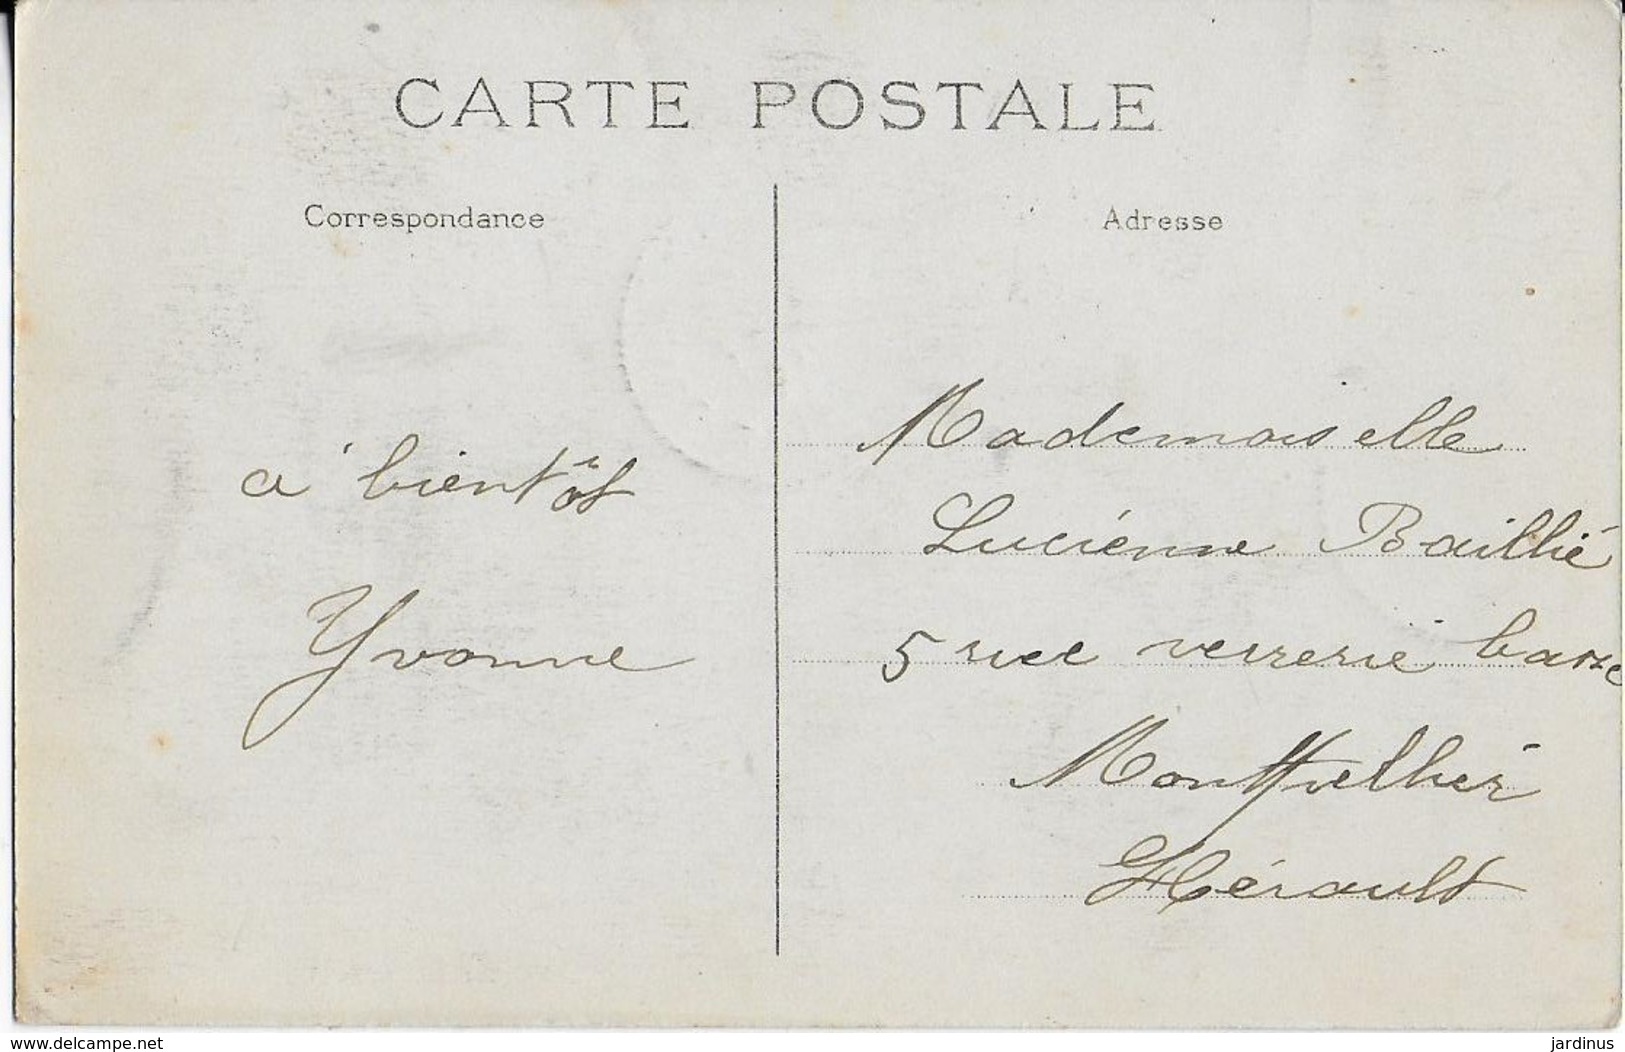 CARTE POSTALE
Correspondance
Adresse
à bientôt
Yvonne
Mademoiselle
Lucienne Baillié
5 rue verrerie basse
Montpellier
Hérault
www.delcampe.net
jardinus